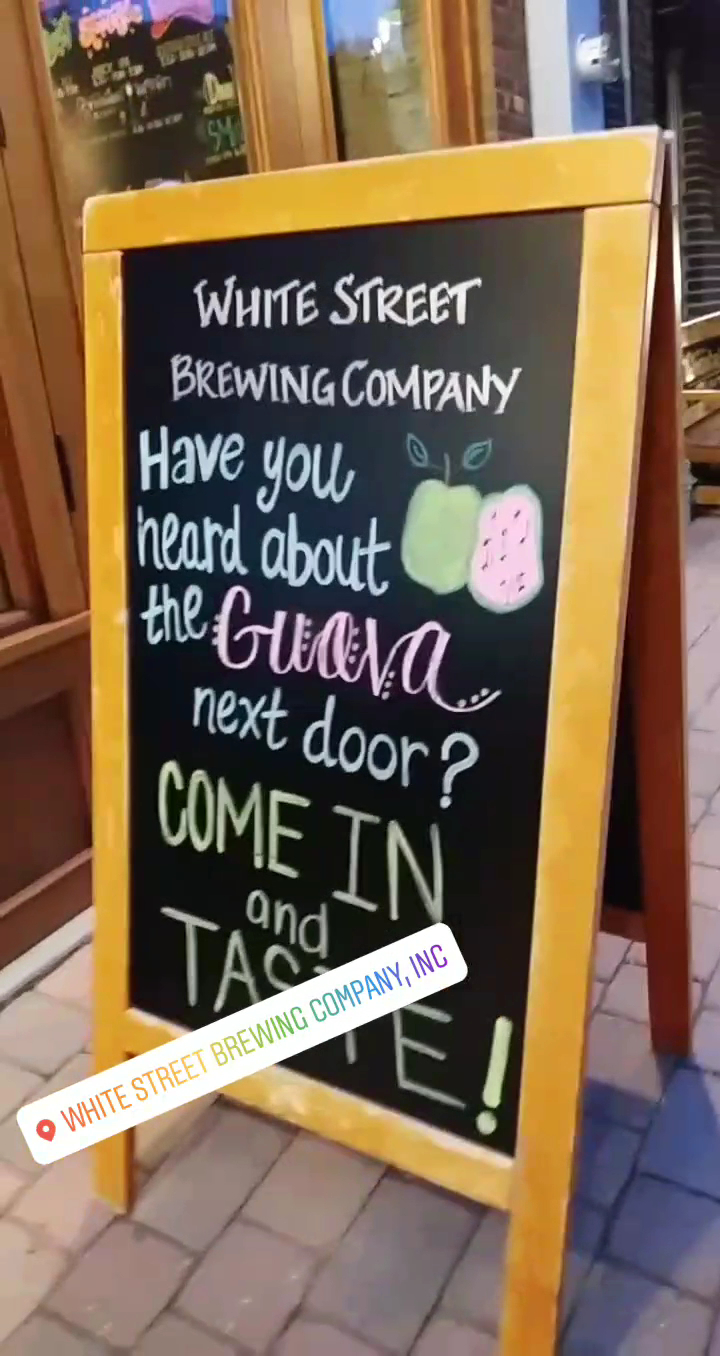 WHITE STREET
BREWING COMPANY
Have you
heard about
the Guava
next door?
COME IN
and
TASTE!
WHITE STREET BREWING COMPANY, INC